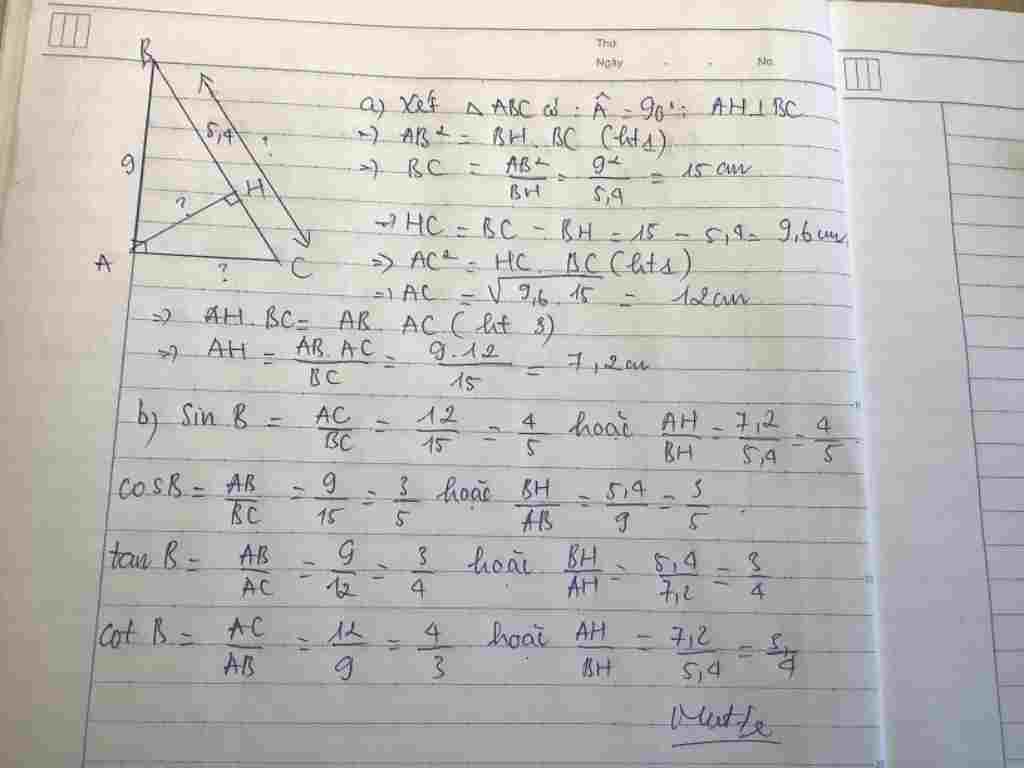 Thứ
Ngày . . No.
B
5,4
?
9
H
?
A
?
C
a) Xét △ ABC có : Â = 90° ; AH⊥BC
=> AB² = BH . BC (ht1)
=> BC = AB²/BH = 9²/5,4 = 15 cm
=> HC = BC - BH = 15 - 5,4 = 9,6 cm
=> AC² = HC . BC (ht1)
=> AC = √9,6 . 15 = 12cm
=> AH . BC = AB . AC ( ht 3)
=> AH = AB. AC/BC = 9.12/15 = 7,2cm
b) Sin B = AC/BC = 12/15 = 4/5 hoặc AH/BH = 7,2/5,4 = 4/5
cosB = AB/BC = 9/15 = 3/5 hoặc BH/AB = 5,4/9 = 3/5 .
tan B = AB/AC = 9/12 = 3/4 hoặc BH/AH = 5,4/7,2 = 3/4
cot B = AC/AB = 12/9 = 4/3 hoặc AH/BH = 7,2/5,4 = 3/4